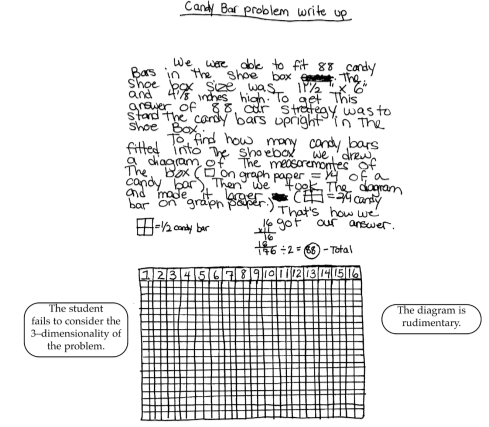 Candy Bar problem write up
We were able to fit 88 candy
Bars in the shoe box The
shoe box size was 11 1/2 " x 6"
and 4 1/8 inches high. To get This
answer of 88 our strategy was to
stand The candy bars upright in The
shoe Box.
To find how many candy bars
fitted into The shoebox we drew
a diagram of The measoremontes of
The box (□ on graph paper = 1/4 of a
candy bar) Then we took The diagram
and made it larger ( = 2/4 candy
bar on graph paper.)
That's how we
got our answer.
= 1/2 candy bar
16
x 11
16
16
176 ÷ 2 = 88 - Total
1 2 3 4 5 6 7 8 9 10 11 12 13 14 15 16
The student
fails to consider the
3–dimensionality of
the problem.
The diagram is
rudimentary.